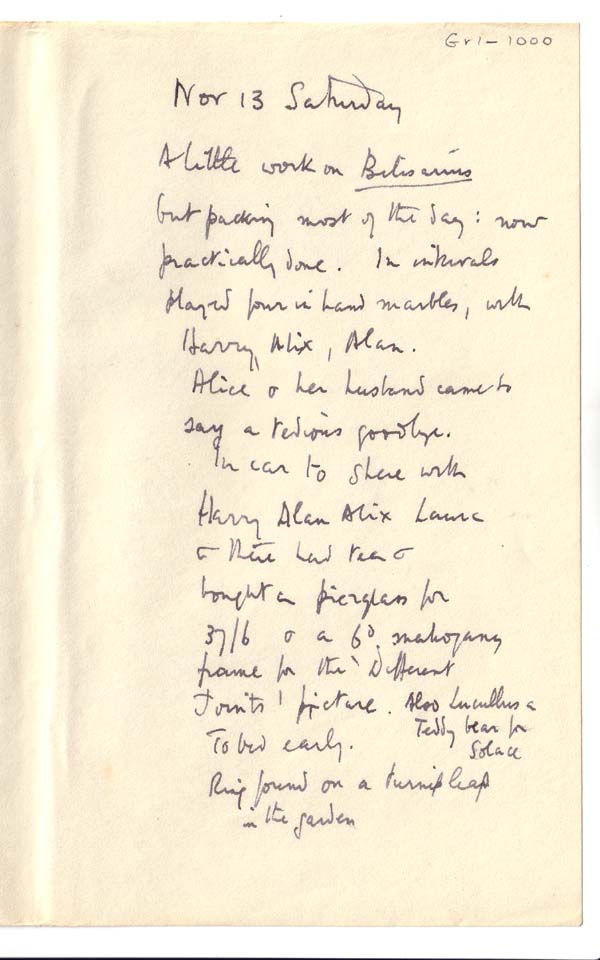 Gr1-1000
Nov 13 Saturday
A little work on Belisarius
but packing most of the day: now
practically done. In intervals
played four in hand marbles, with
Harry, Alix, Alan.
Alice & her husband came to
say a tedious goodbye.
In car to Shere with
Harry Alan Alix Laura
& there had tea &
bought a pierglass for
37/6 & a 6d. mahogany
frame for the 'Different
Points' picture. Also Lucullus a
Teddy bear for
Solace
To bed early.
Ring found on a turnip leaf
in the garden